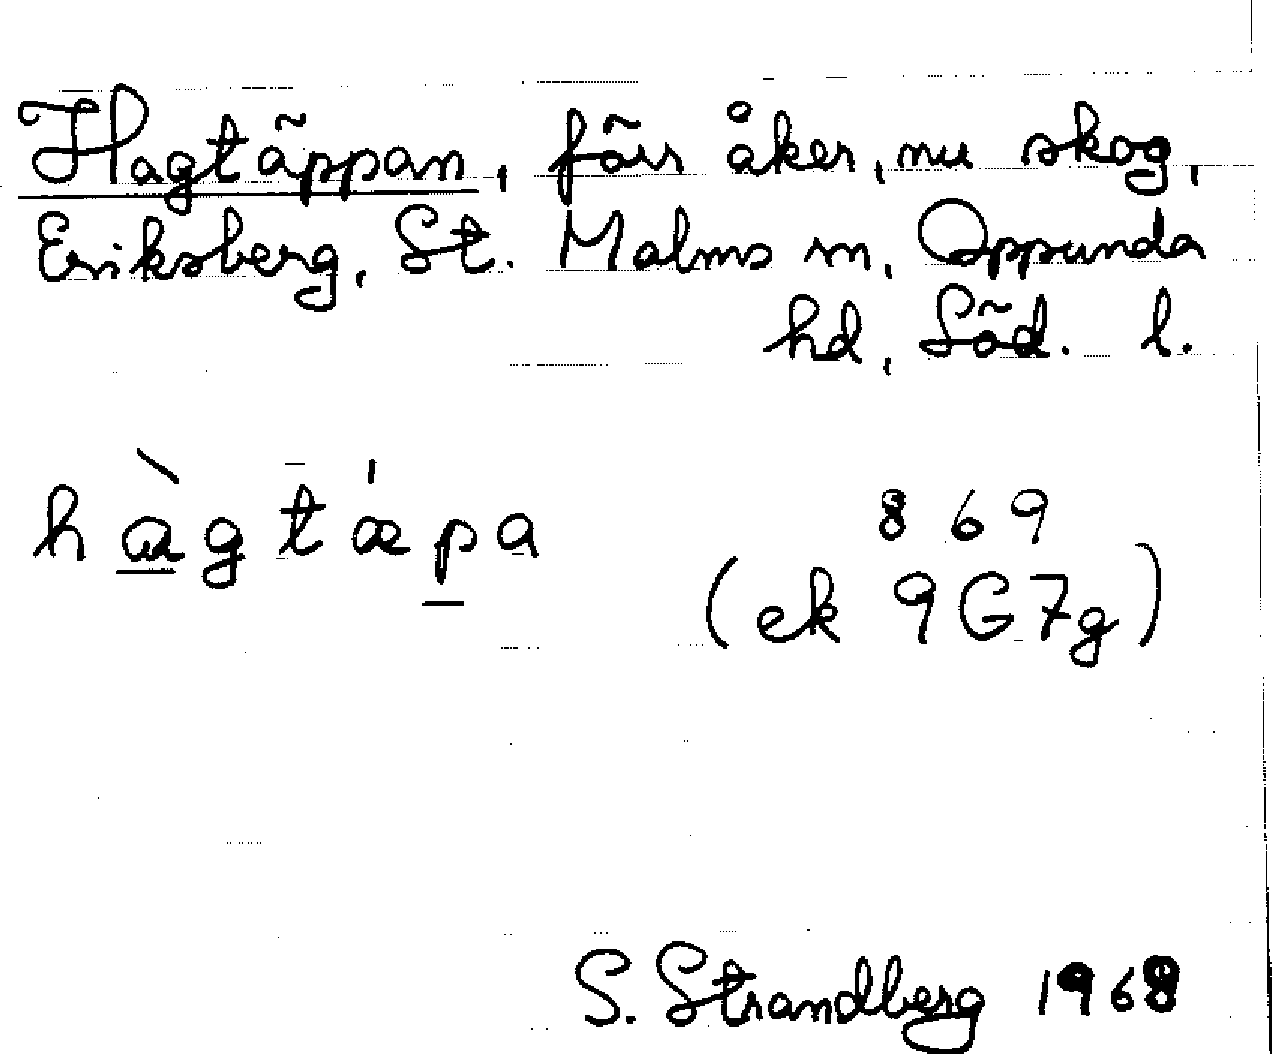 Hagtäppan, förr åker, nu skog,
Eriksberg, St. Malms sn, Oppunda
hd, Söd. l.
hàgtæpa
869
(ek 9G7g)
S. Strandberg 1968